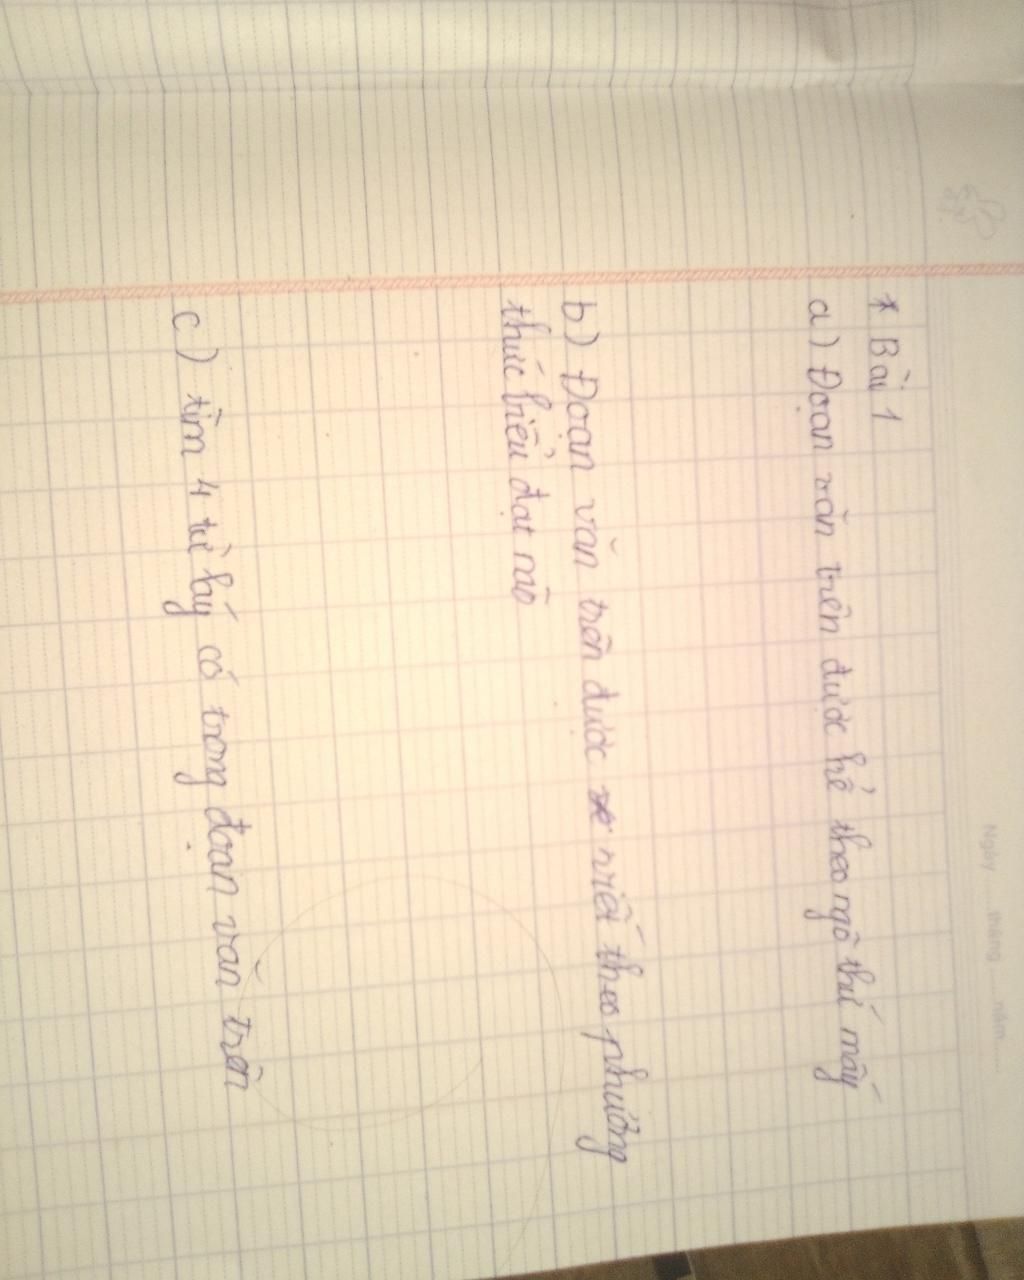 Ngày ..... tháng ..... năm .....
* Bài 1
a) Đoạn văn trên được kể theo ngô thứ mấy
b) Đoạn văn trên được viết theo phương
thức biểu đạt nào
c) tìm 4 từ láy có trong đoạn văn trên